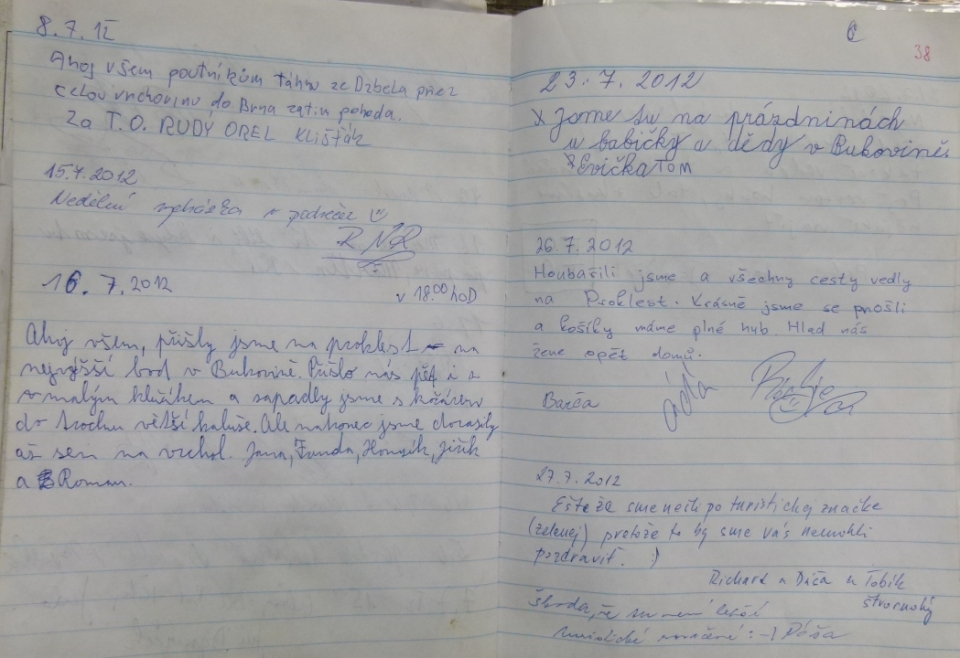 8.7.12
Ahoj všem poutníkům táhnu ze Dzbela přez
celou vrchovinu do Brna zatím pohoda.
Za T.O. RUDÝ OREL Klišťák
15.7.2012
Nedělní vycházka
RNR
16. 7. 2012
v 18.00 hod
Ahoj všem, přišly jsme na proklest na
nejvyšší bod v Bukovině. Přišlo nás pět i
s malým klúčíkem a zapadly jsme s kočárem
do trochu větší kaluže. Ale nakonec jsme dorazily
až sem na vrchol. Jana, Fanda, Honzík, Jiřík
a Roman.
38
23. 7. 2012
x Jsme tu na prázdninách
u babičky a dědy v Bukovině.
Evička TOM
26.7.2012
Houbařili jsme a všechny cesty vedly
na Proklest. Krásně jsme se prošli
a košíky máme plné hub. Hlad nás
žene opět domů.
Barča
áďa
27.7.2012
Ešte že sme nešli po turistickej značke
(zelenej) protože to by sme vás nemohli
pozdravit. :)
Richard a Dáša a Tobík
štvornohý
Škoda, že tu není lepší
turistické značené :-) Dáša